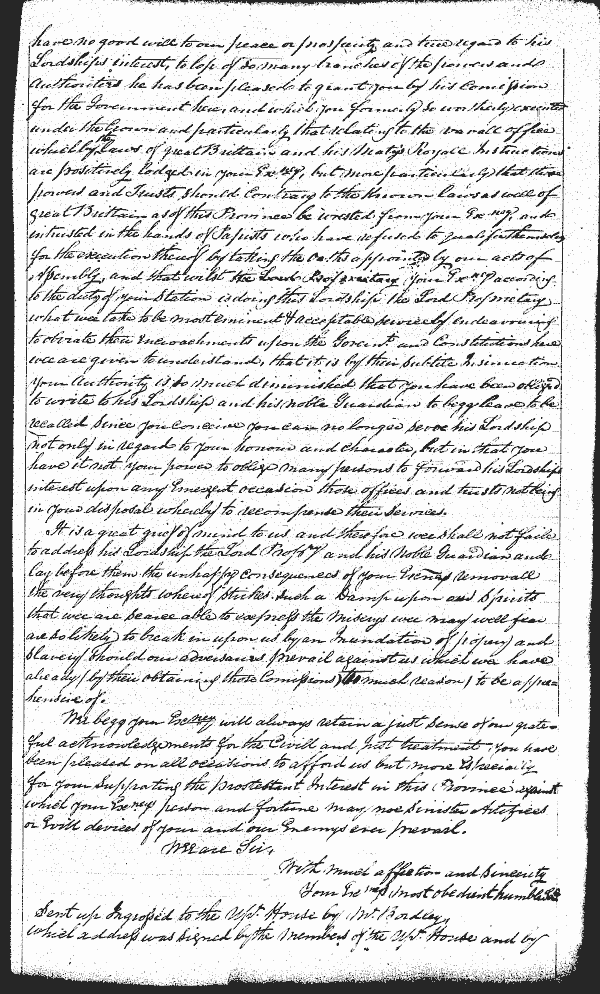 have no good will to our peace or prosperity and true regard to his
Lordships interest, to lop of so many branches of the powers and
Authoritys he has been pleased to grant you by his Comission
for the Government here, and which you formerly so worthely executed
under the Crown and particularly that relating to the navall officer
which by the Laws of great Brittain and his Matys Royall Instructions
are positively lodged in your Excncy, but more particularly that those
powers and Trusts should Contrary to the known laws as well of
great Brittain as of this Province be wrested from your Excncy, and
intrusted in the hands of Papists who have refused to qualifie themselves
for the execution thereof by taking the oaths appointed by our acts of
Assembly, and that whilst the Lord Proprietary Your Excncy according
to the duty of your Station is doing his Lordship the Lord Proprietary
what wee take to be most eminent & acceptable service by endeavouring
to obviate their incroachments upon the Govermt. and Constitutions here
wee are given to understand, that it is by their subtile Insinuations
your Authority is so much diminished that you have been obliged
to write to his Lordship and his noble Guardian to begg leave to be
recalled since you conceive you can no longer serve his Lordship
not only in regard to your honour and character, but in that you
have it not in your power to oblige many persons to forward his Lordships
interest upon any Emergent occasion those offices and trusts not being
in your disposal whereby to recompense their services.
It is a great grief of mind to us and therefore wee shall not faile
to address his Lordship the Lord Propry and his Noble Guardian and
lay before them the unhappy consequences of your Excncys removall
the very thoughts whereof strikes such a Damp upon our Spirits
that wee are scarce able to express the Miserys wee may well fear
are so likely to break in upon us by an Inundation of popery and
slavery should our adversaries prevail against us which we have
already (by their obtaining those Comissions) too much reason) to be appre-
hensive of.
We begg your Excncy will always retain a just sense of our grate-
ful acknowledgements for the Civill and Just treatment you have
been pleased on all occasions to afford us but more especially
for your Supporting the protestant Interest in this Province against
which your Excncys person and fortune may noe sinister Artifices
or Evill devices of your and our Enemys ever prevail.
Wee are Sir,
With much affection and sincerity
Your Excncys most obedient humble
Sent up Ingrossed to the Uppr. House by Mr. Bordley,
which address was signed by the members of the Uppr. House and by